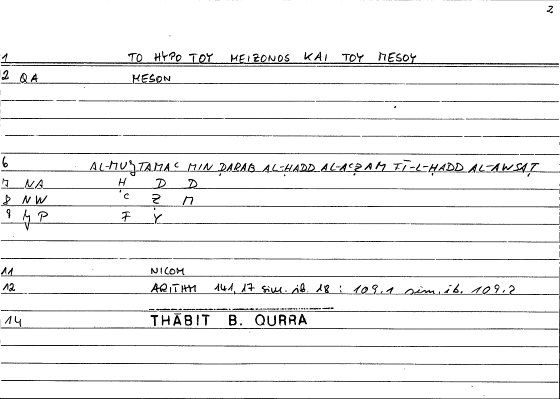 2
1 TO HYPO TOY MEIZONOS KAI TOY MESOY
2 QA MESON
6 AL-MUǧTAMAC MIN ḌARAB AL-ḤADD AL-ACẒAM FĪ-L-ḤADD AL-AWSAṬ
7 NA Ḥ D D
8 NW C Ẓ M
9 ǧ P F Y
11 NICOM
12 ARITHM 141,17 sim. ib. 18 : 109,1 sim. ib. 109,2
14 THĀBIT B. QURRA